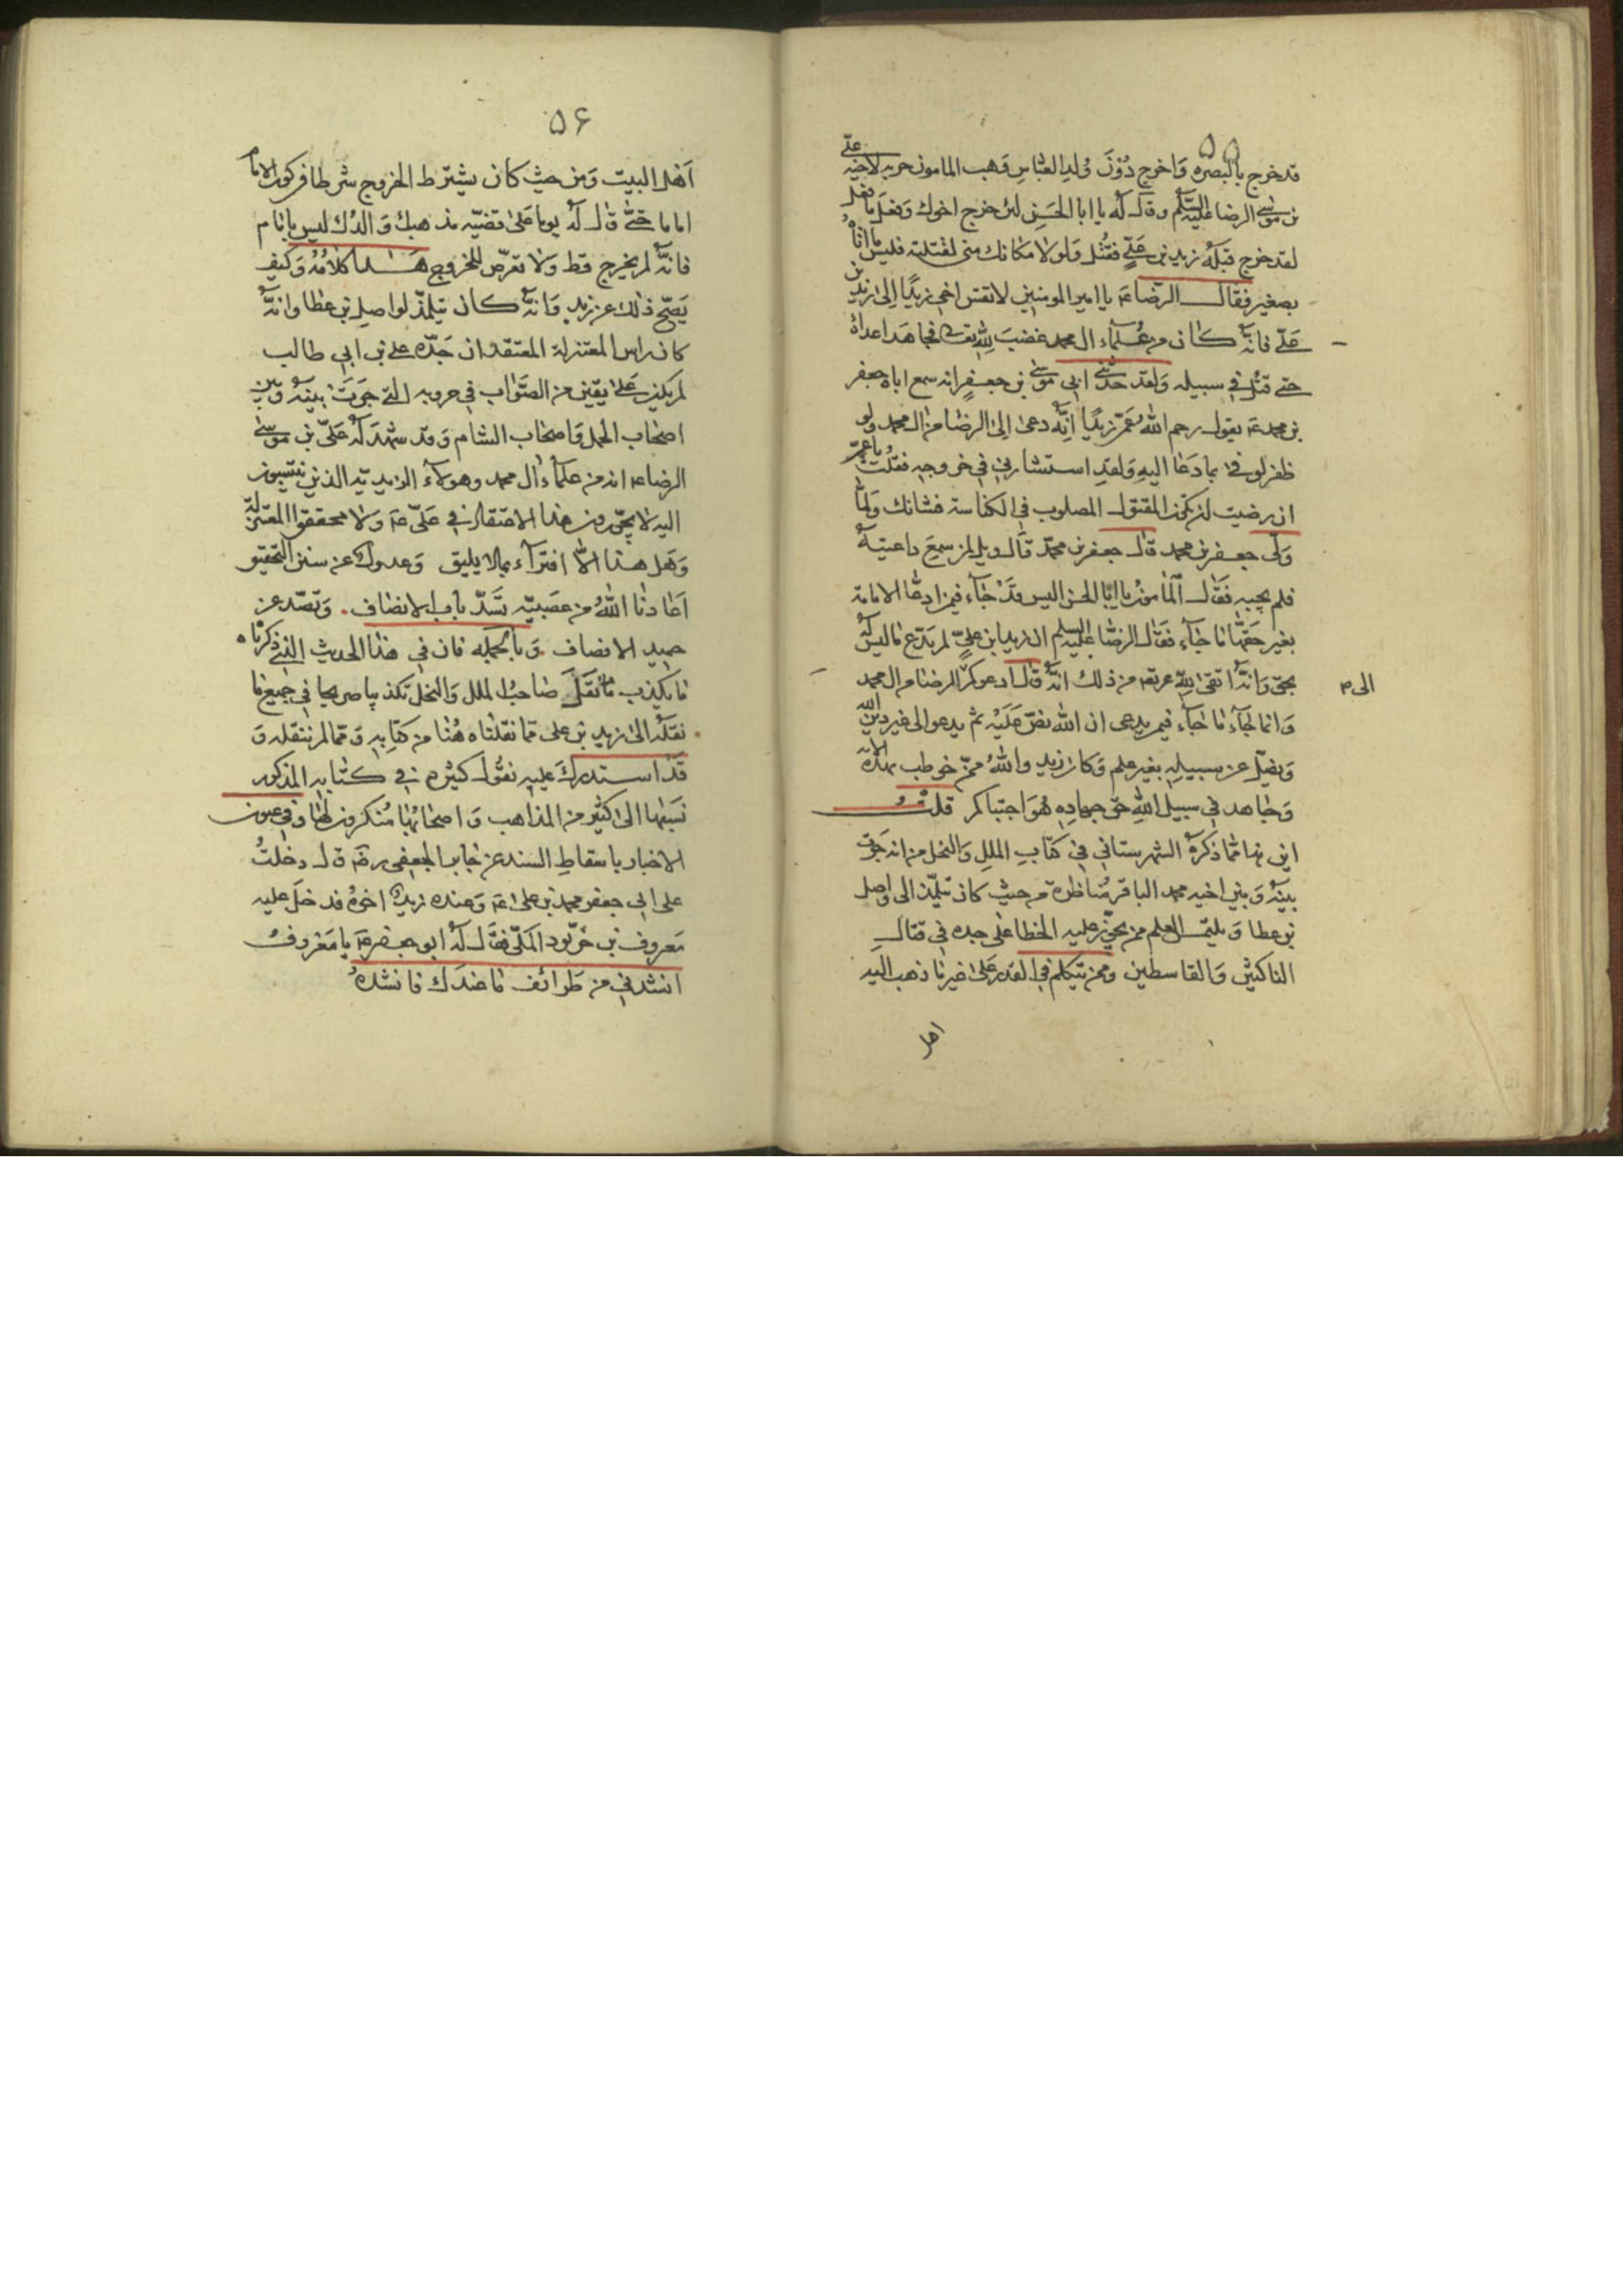 ٥٥
قد خرج بالبصره وَاخرج دُوْرَ وُلدِ العبّاسِ وَهب المامون جرمه لاخيه علیّ
بن موسٰى الرضا عليه السّلم وقال له يا ابا الحَسَنِ لئن خرج اخوك وَفعَل ما فعل
لقد خرج قبلَهُ زيد بن عَلیٍّ فقُتُل وَلولا مكانك منى لقتلته فليس ما اتاهُ
بصغير فقال الرضا عٓه يا امير المومنين لا تقس اخى زيدًا اِلىٰ زيد بن
عَلیّ فانّهُ كان من عُلمآءِ ال محمد غضبَ لِلّٰهِ تعٓ فجاهَد اعداهُ
حتى قتُل فى سبيله وَلقد حَدّثنى ابى موسٰى بن جعفرٍ انه سمع اباه جعفر
بن محمد عٓه يقول رحم اللّٰهُ عَمّى زيدًا اِنّه دعىٰ اِلىٰ الرضا من ال محمد ولو
ظفر لوفىٰ بما دَعَا اليهِ وَلقدِ استشارنى فى خروجه فقلُت يا عَمِّ
ان رضيت ان تكون المقتول المصلوب فى الكناسة فشانك وَلمّا
وَلّى جعفر بن محمد قال جعفر بن محمّد قال ويل لمن سمِعَ داعيتهُ
فلم يجبه فقَال المَامونُ يا ابَا الحسن اليس قدْ جَآءَ فيمن ادعَّا الامامة
بغير حَقّها مَا جَآء فقَال الرضَا عَليه السلم ان زيدا بن عَلیٍّ لم يَدّعِ مَا ليسَ لَهُ
بحقّ وَانّهُ اتقىٰ لِلّٰه عٓه من ذلك انّهُ قال ادعوكم الى الرضا من ال محمد
وَانما جَآء مَا جَآء فيمن يدعى ان اللّٰه نصّ عَلَيْه ثم يدعو الى غير دين اللّٰه
وَيضلّ عن سبيلِهِ بغير علم وَكان زيد واللّٰهُ ممّن خوطب بهذه الايه
وَجَاهدوا فى سبيل اللّٰهِ حقّ جهادِهِ هُوَ اجتباكم قلتُ
اين هذا ممّا ذكرهُ الشهرستانى فى كتابِ المللِ وَالنحل من انه جَرت
بينهُ وَبين اخيه محمد الباقر مُنَاظرة من حيث كان تيلمّذ الى واصل
بن عطا وَ يلتمس العلم ممن يجوّز عليه الخطا عَلى جده فى قتالِ
الناكثين وَالقاسطين وممن يتكلم فى القدر عَلىٰ غير مَا ذهب اليه
اهل
الى
٥٦
اَهل البيت وَمن حيث كان يشترط الخروج شرطا فى كون الامام
اماما حتّى قال لهُ يوما عَلىٰ قضيّه مذهبك وَالدُك ليس بامَام
فانّهُ لم يخرج قط وَلا تعرّض للخروج هَـذا كلامُهُ وَكيف
يَصّح ذٰلك عن زيد وَانّهُ كان تيلمّذ لواصِل بن عطا وانهُ
كان راس المعتزلة المعتقد ان جَدّه على بن ابى طالب
لم يكن عَلىٰ يقين من الصّوَاب فى حروبه التى جَرَتْ بينهُ وَبين
اصْحَاب الجمل وَاصحاب الشام وَقد شهدَ لهُ عَلیّ بن موسىٰ
الرضا عٓه انه من علمآءِ ال محمد وهولآء الزيديّه الذين ينتسبون
اليه لا يجوّزون هذا الاعتقاد فى عَلیّ عٓه وَلا محققوا المعتزلة
وَهَل هذا الاّ افترآء بما لا يليق وَعدول عن سنن التحقيق
اَعَاذنا اللّٰهُ من عصَبيّه تَسدّ باب الانصَاف. وَتصّد عن
جميد الاوصاف وَبالجمله فان فى هَذا الحديث الذى ذكرنَاه
مَا يكذب مَا نَقَلَهُ صَاحبُ الملل وَالنحل تكذيبا صريحا فى جميعِ مَا
نقَلَهُ الىٰ زيد بن على ممّا نقلنَاه هُنَا من كتابِهِ وَممّا لم ننقله وَ
قدِ استدرك عَليهِ نقُول كثيرة فى كتَابه المذكور
نَسَبَها الىٰ كثيْرٍ من المذاهب وَاصحَابُهَا مُنكرون لهَا وَفى عيون
الاخبار باسقاطِ السند عن جَابر الجعفى رضٓه قال دخلتُ
على ابى جعفر محمد بن على عٓه وَعنده زيد اخوهُ فدخَلَ عليه
مَعروف بن خَرّبود المكىّ فقَال لَهُ ابو جعفر عٓه يا مَعْروفُ
انشدنى من طَرائف مَا عندَك فانشدهُ